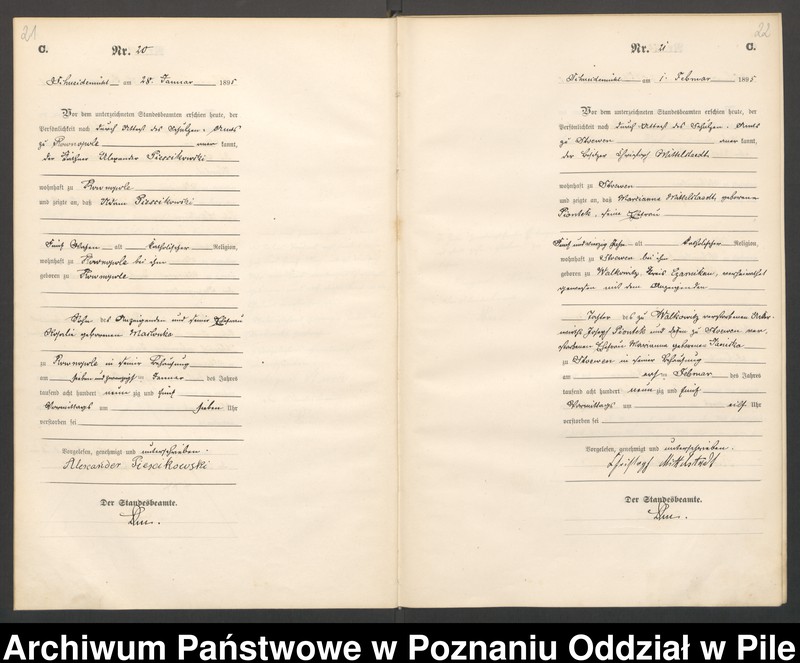 21
C. Nr. 20
Schneidemühl am 28. Januar 1895
Vor dem unterzeichneten Standesbeamten erschien heute, der
Persönlichkeit nach durch Attest des Schulzen-Amts
zu Kownopole aner kannt,
der Alexander Piescikowski
wohnhaft zu Kownopole
und zeigte an, daß Adam Piescikowski
Fünf Wochen alt katholischer Religion,
wohnhaft zu Kownopole bei ihm
geboren zu Kownopole
Sohn des Anzeigenden und seiner Ehefrau
Rosalie geborenen
zu Kownopole in seiner Behausung
am sieben und zwanzigsten Januar des Jahres
tausend acht hundert neun zig und fünf
Vormittags um sieben Uhr
verstorben sei
Vorgelesen, genehmigt und unterschrieben.
Alexander Piescikowski
Der Standesbeamte.
22
Nr. 21 C.
Schneidemühl am 1. Februar 1895
Vor dem unterzeichneten Standesbeamten erschien heute, der
Persönlichkeit nach durch Attest des Schulzen-Amts
zu Stoewen aner kannt,
der Besitzer Christoph Mittelstaedt
wohnhaft zu Stoewen
und zeigte an, daß Marianna Mittelstaedt geborene
Piontek, seine Ehefrau
alt katholischer Religion,
wohnhaft zu Stoewen bei ihm
geboren zu Walkowitz, Kreis Czarnikau, verheirathet
gewesen mit dem Anzeigenden
Tochter des zu Walkowitz verstorbenen
Joseph Piontek und dessen zu Stoewen ver-
storbenen Ehefrau Marianna geborenen Janicka
zu Stoewen in seiner Behausung
am ersten Februar des Jahres
tausend acht hundert neun zig und fünf
Vormittags um Uhr
verstorben sei
Vorgelesen, genehmigt und unterschrieben.
Christoph Mittelstädt
Der Standesbeamte.
Archiwum Państwowe w Poznaniu Oddział w Pile